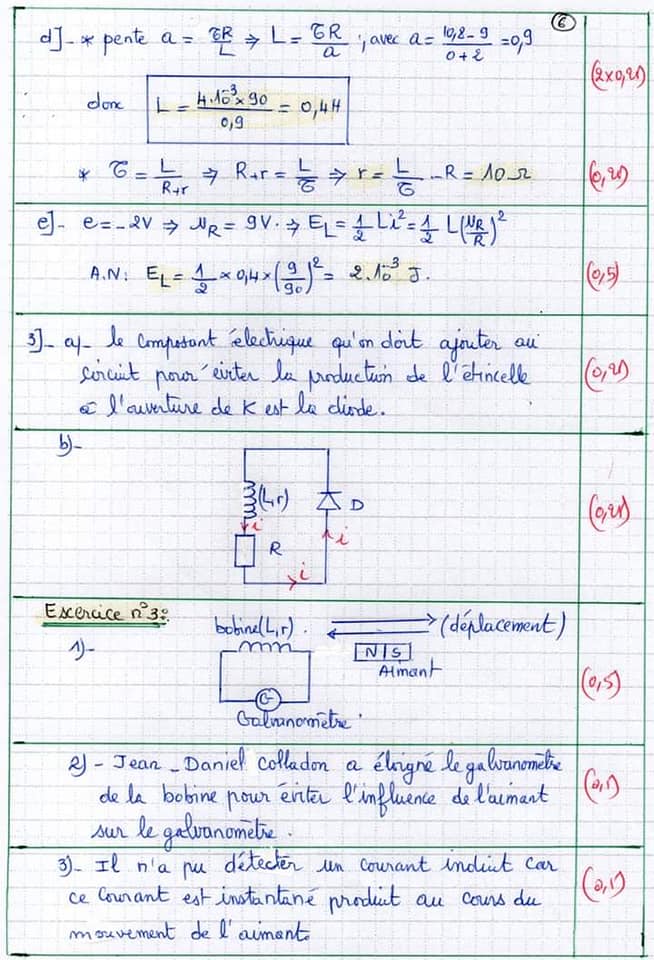 6
d]- * pente a = τR/L ⇒ L = τR/a ; avec a = (10,8 - 9)/(0 + 2) = 0,9
(2x0,25)
donc L = (4.10⁻³ x 90)/0,9 = 0,4H
* τ = L/(R+r) ⇒ R+r = L/τ ⇒ r = L/τ - R = 10 Ω
(0,25)
e]- e = -2V ⇒ uR = 9V. ⇒ EL = 1/2 Li² = 1/2 L(uR/R)²
A.N: EL = 1/2 x 0,4 x (9/90)² = 2.10⁻³ J.
(0,5)
3]- a)- le composant électrique qu'on doit ajouter au
circuit pour éviter la production de l'étincelle
à l'ouverture de K est la diode.
(0,25)
b)-
(L,r)
D
i
R
i
i
(0,25)
Exercice n°3:
1)-
bobine(L,r).
(déplacement)
N|S
Aimant
G
Galvanomètre
(0,5)
2)- Jean-Daniel Colladon a éloigné le galvanomètre
de la bobine pour éviter l'influence de l'aimant
sur le galvanomètre.
3)- Il n'a pu détecter un courant induit car
ce courant est instantané produit au cours du
mouvement de l'aimant.